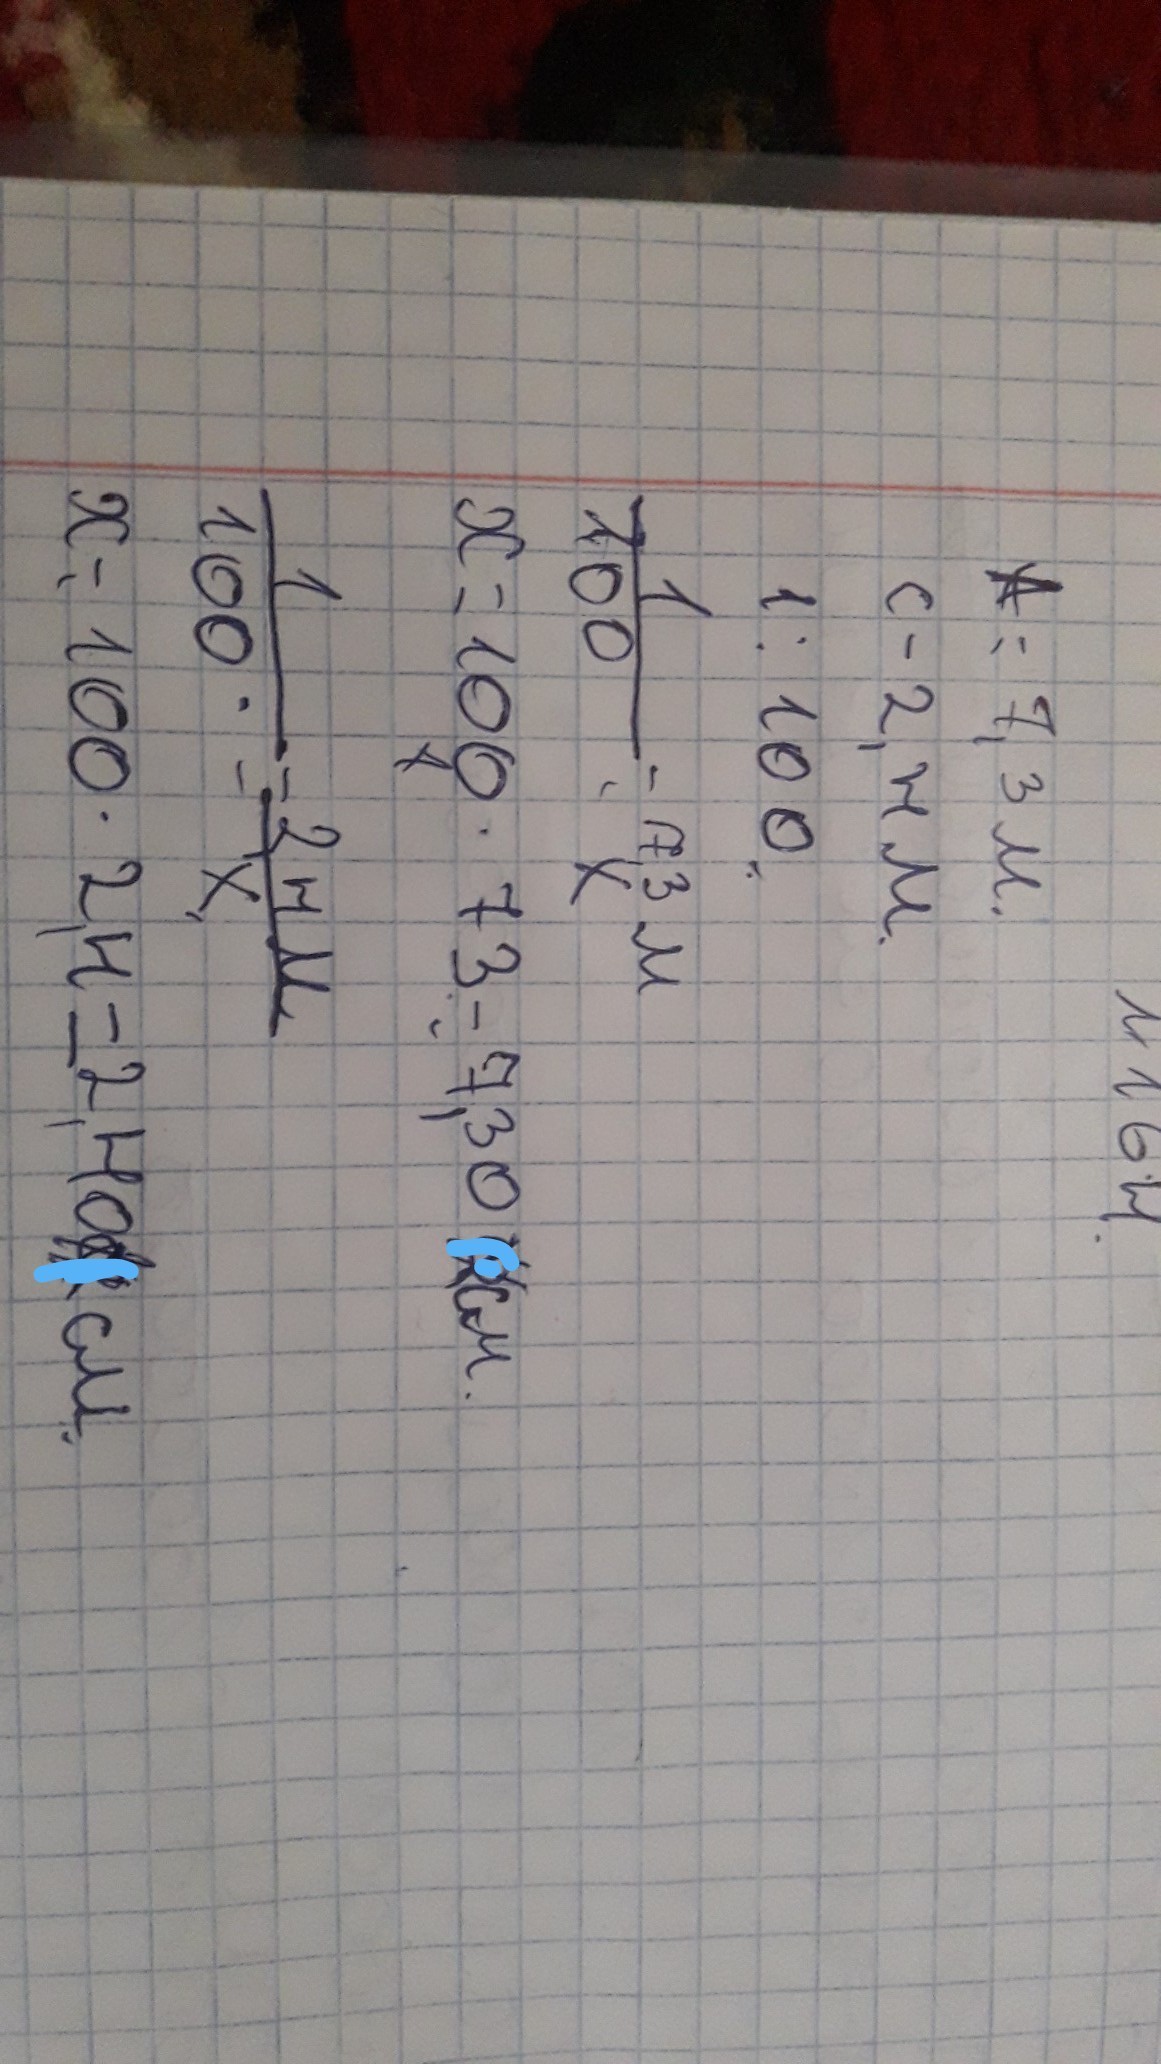 н 164.
А = 7,3 м.
с - 2,4 м.
1 : 100.
1
100
= 7,3 м
х
х = 100 · 73 = 7,30 см.
х
1
100
= 2,4 м
х
х = 100 · 2,4 = 2,40 см.